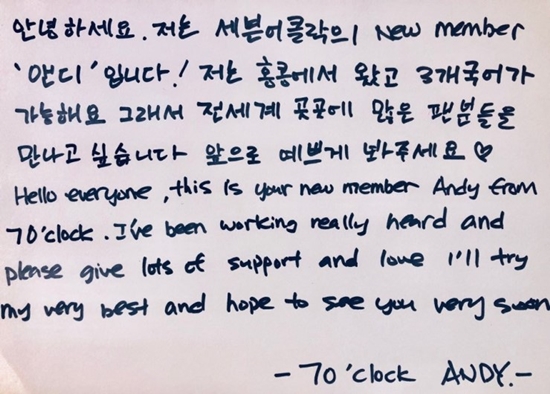 안녕하세요. 저는 세븐어클락의 New member
'앤디' 입니다! 저는 홍콩에서 왔고 3개국어가
가능해요 그래서 전세계 곳곳에 많은 팬분들을
만나고 싶습니다 앞으로 예쁘게 봐주세요♡
Hello everyone, this is your new member Andy from
7O'clock. I've been working really heard and
please give lots of support and love I'll try
my very best and hope to see you very soon
- 7O'clock ANDY.-